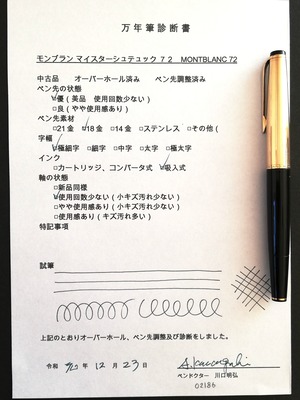 万年筆診断書
モンブラン マイスターシュテュック 72 MONTBLANC 72
中古品 オーバーホール済み ペン先調整済み
ペン先の状態
☑優(美品 使用回数少ない)
□良(やや使用感あり)
ペン先素材
□21金 ☑18金 □14金 □ステンレス □その他(
字幅
☑極細字 □細字 □中字 □太字 □極太字
インク
□カートリッジ、コンバータ式 ☑吸入式
軸の状態
□新品同様
☑使用回数少ない(小キズ汚れ少ない)
□やや使用感あり(小キズ汚れ少ない)
□使用感あり(キズ汚れ多い)
特記事項
試筆
上記のとおりオーバーホール、ペン先調整及び診断をしました。
令和 年 12 月 23 日
ペンドクター 川口明弘
02186